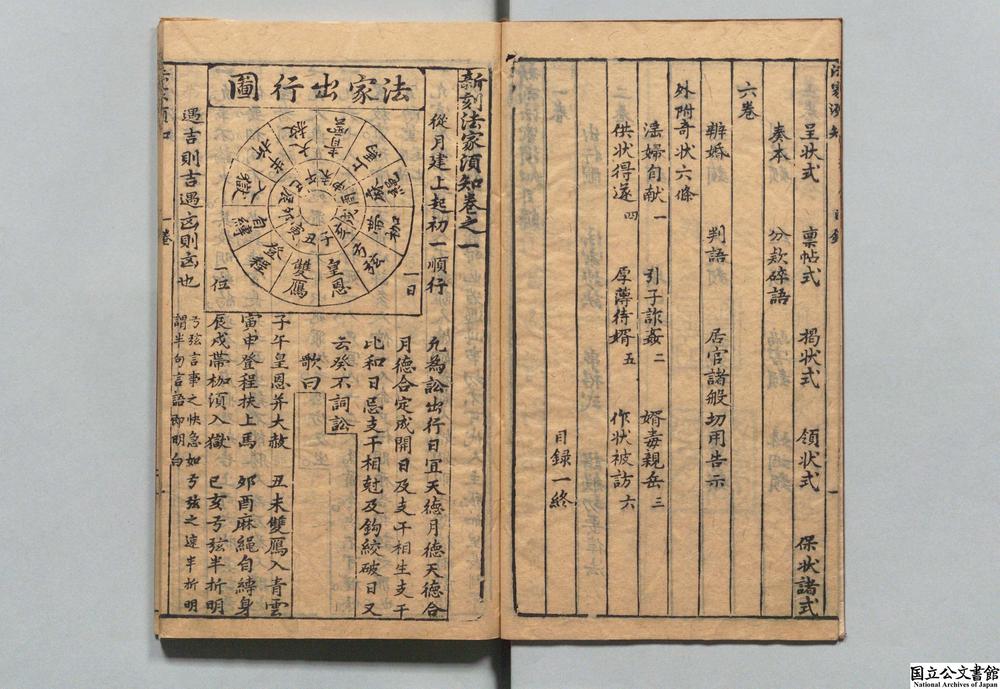 呈状式 禀帖式 揭状式 領状式 保状諸式
奏本 分款碎語
六卷
辨婚 判語 居官諸般切用告示
外附奇状六條
淫婦自献 一 引子詐姦 二 婿毒親岳 三
供状得遂 四 厚薄待婿 五 作状被訪 六
目録一終
新刻法家須知卷之一
從月建上起初一順行
法家出行圖
一日
一位
皇恩
雙鴈
登程
自縛
入獄
半折
大赦
青雲
上馬
麻繩
帯枷
弓弦
遇吉則吉遇凶則凶也
凢為訟出行日宜天德月德天德合
月德合定成開日及支干相生支干
比和日忌支干相尅及鈎絞破日又
云癸不詞訟
歌曰
子午皇恩并大赦 丑未雙鴈入青雲
寅申登程扶上馬 夘酉麻繩自縛身
辰戌帯枷須入獄 巳亥弓弦半折明
弓弦言事之快急如弓弦之速半折明
謂半句言語即明白
一卷
国立公文書館
National Archives of Japan